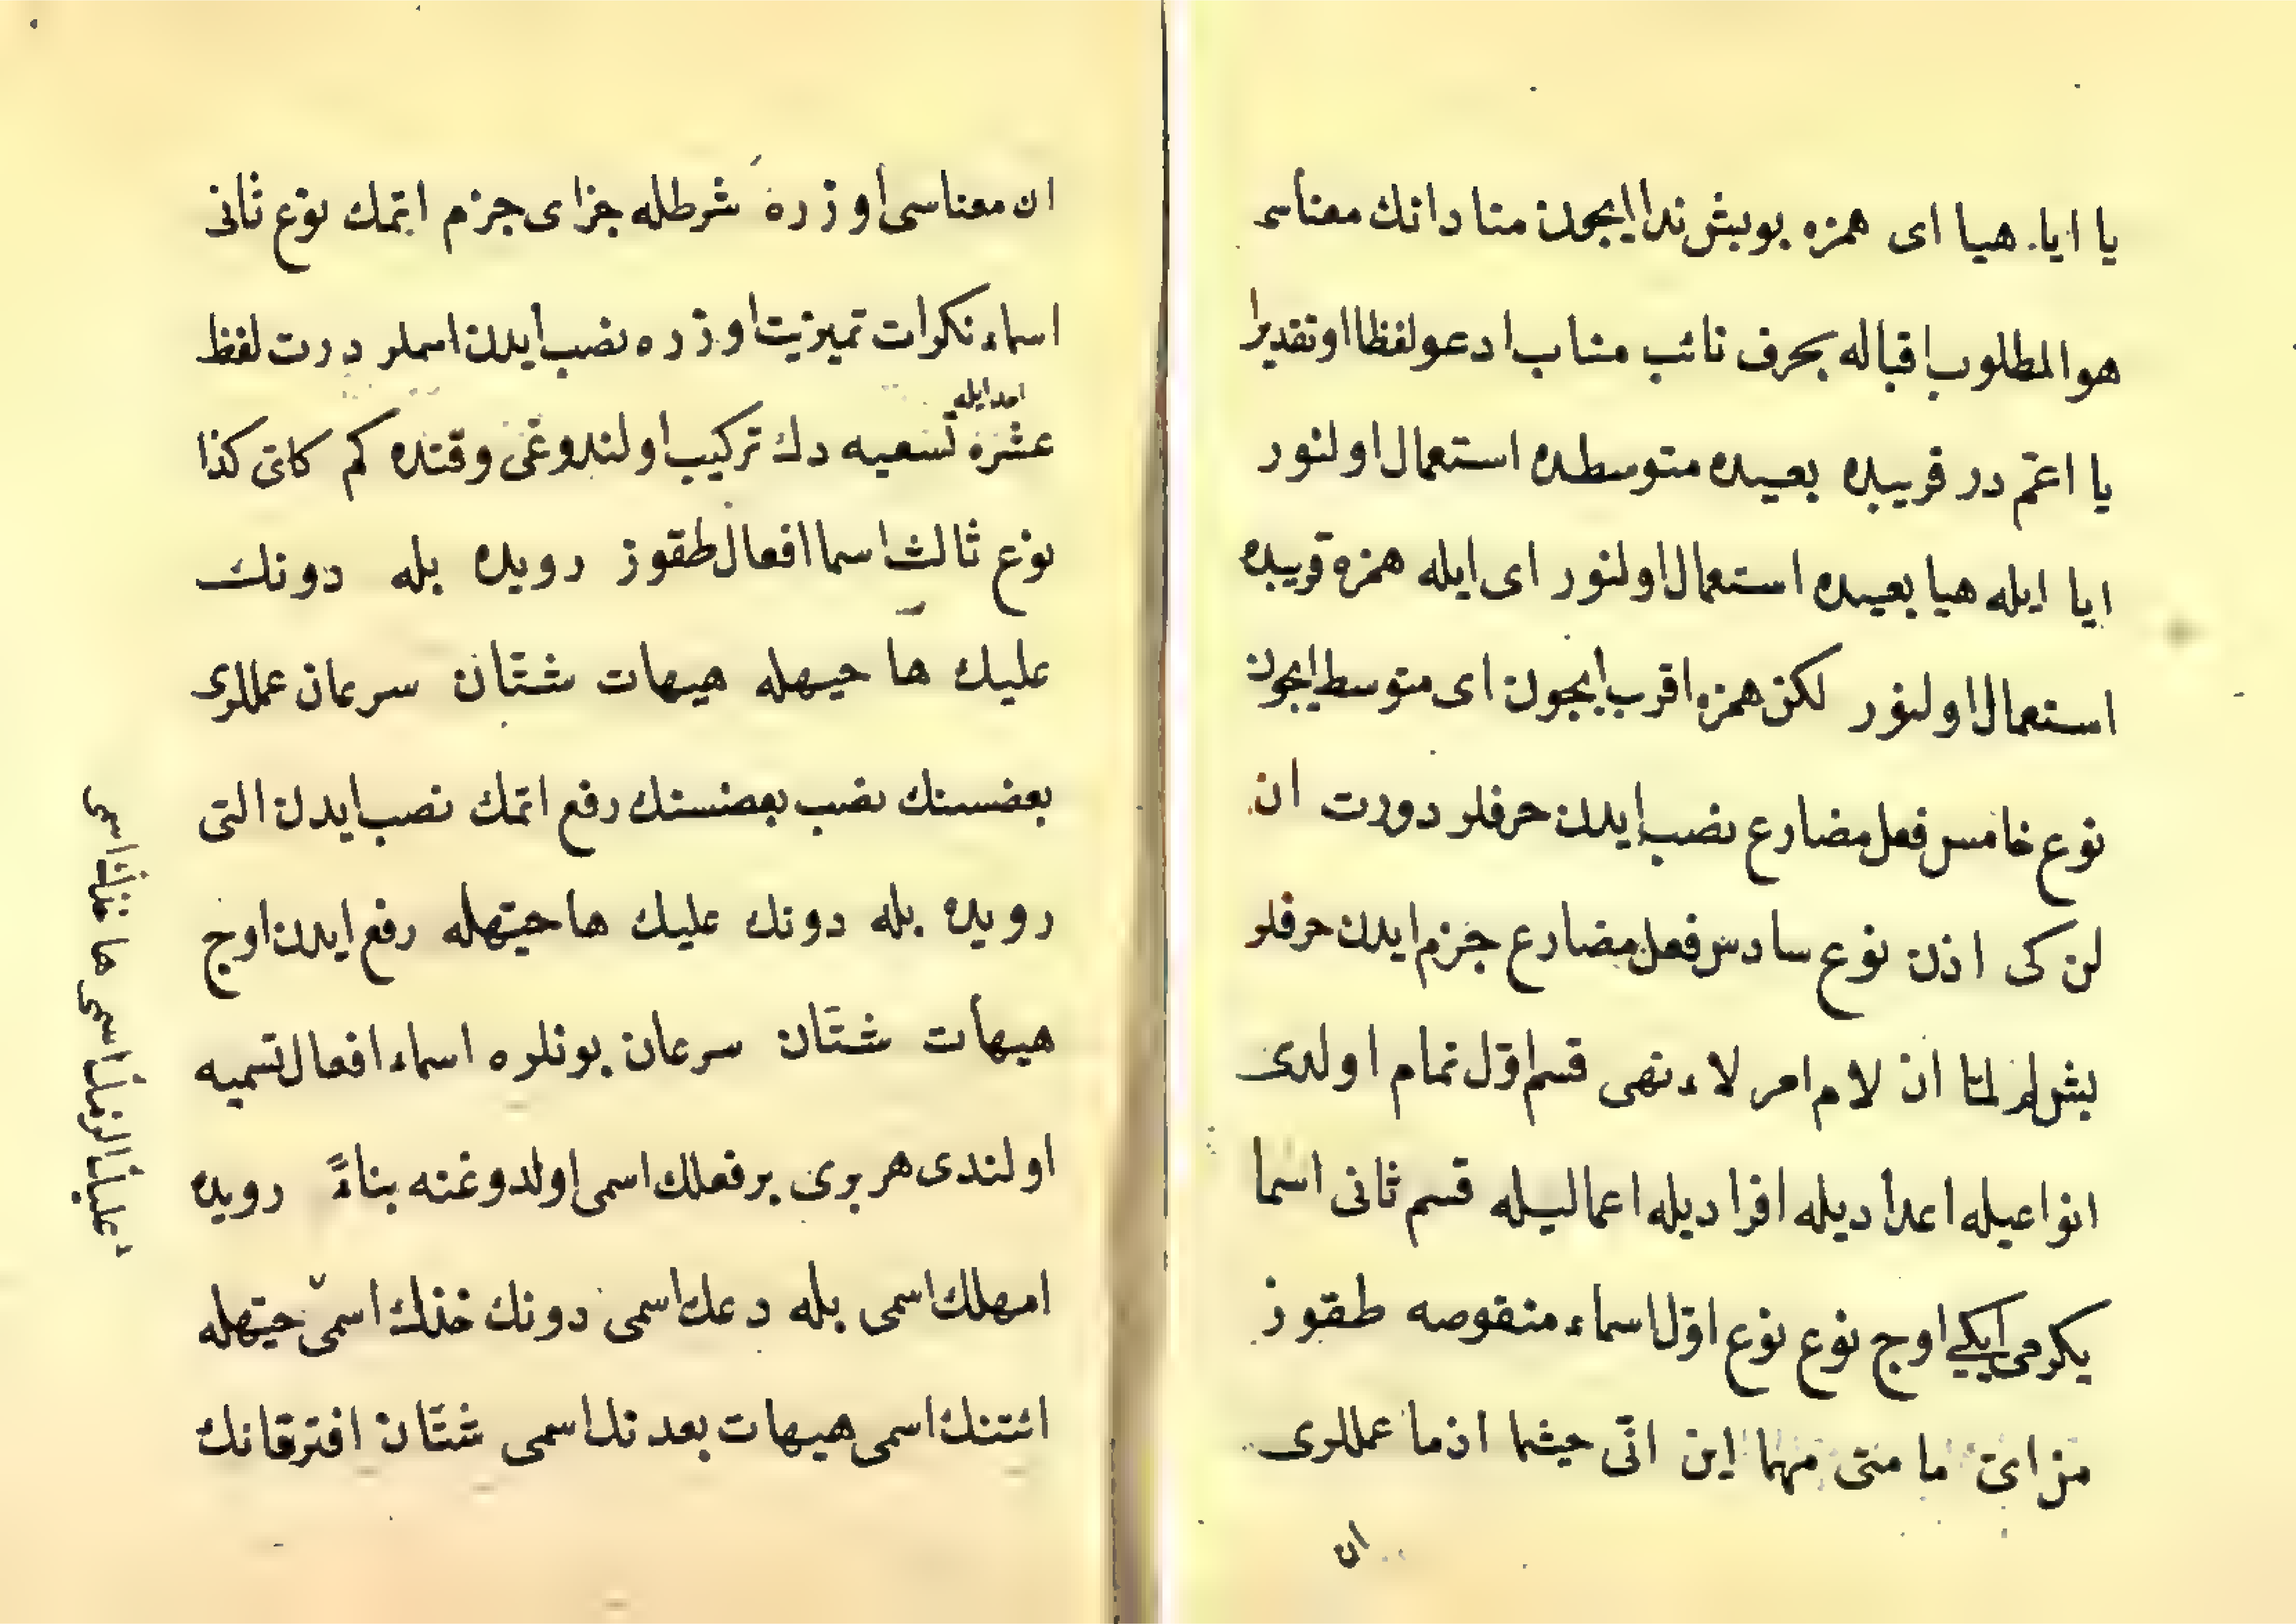 يا ايا هيا اى همزه بو بش ندا ايچون منادانك معناسى
هو المطلوب اقباله بحرف نائب مناب ادعو لفظا او تقديرا
يا اعمّ در قريبده بعيده متوسطده استعمال اولنور
ايا ايله هيا بعيده استعمال اولنور اى ايله همزه قريبده
استعمال اولنور لكن همزه اقرب ايچون اى متوسط ايچون
نوع خامس فعل مضارع نصب ايدن حرفلر دورت ان
لن كى اذن نوع سادس فعل مضارع جزم ايدن حرفلر
بش لم لمّا ان لام امر لاء نهى قسم اوّل تمام اولدى
انواعيله اعداديله افراديله اعماليله قسم ثانى اسما
يكرمى ايكى اوج نوع نوع اوّل اسماء منقوصه طقوز
من اىّ ما متى مهما اين انّى حيثما اذما عمللرى
ان
ان معناسى اوزره شرطله جزاى جزم اتمك نوع ثانى
اسماء نكرات تميزيت اوزره نصب ايدن اسملر درت لفظ
عشره احد ايله تسعيه دك تركيب اولندوغى وقتده كم كاىّ كذا
نوع ثالث اسما افعال طقوز رويده بله دونك
عليك ها حيهله هيهات شتّان سرعان عمللرى
بعضسنك نصب بعضسنك رفع اتمك نصب ايدن التى
رويده بله دونك عليك ها حيّهله رفع ايدن اوج
هيهات شتّان سرعان بونلره اسماء افعال تسميه
اولندى هر برى بر فعلك اسمى اولدوغنه بناءً رويده
امهلك اسمى بله دعك اسمى دونك خذك اسمى حيّهله
ائتنك اسمى هيهات بعدنك اسمى شتّان افترقانك
عليك الزمك اسمى ها خذك اسمى